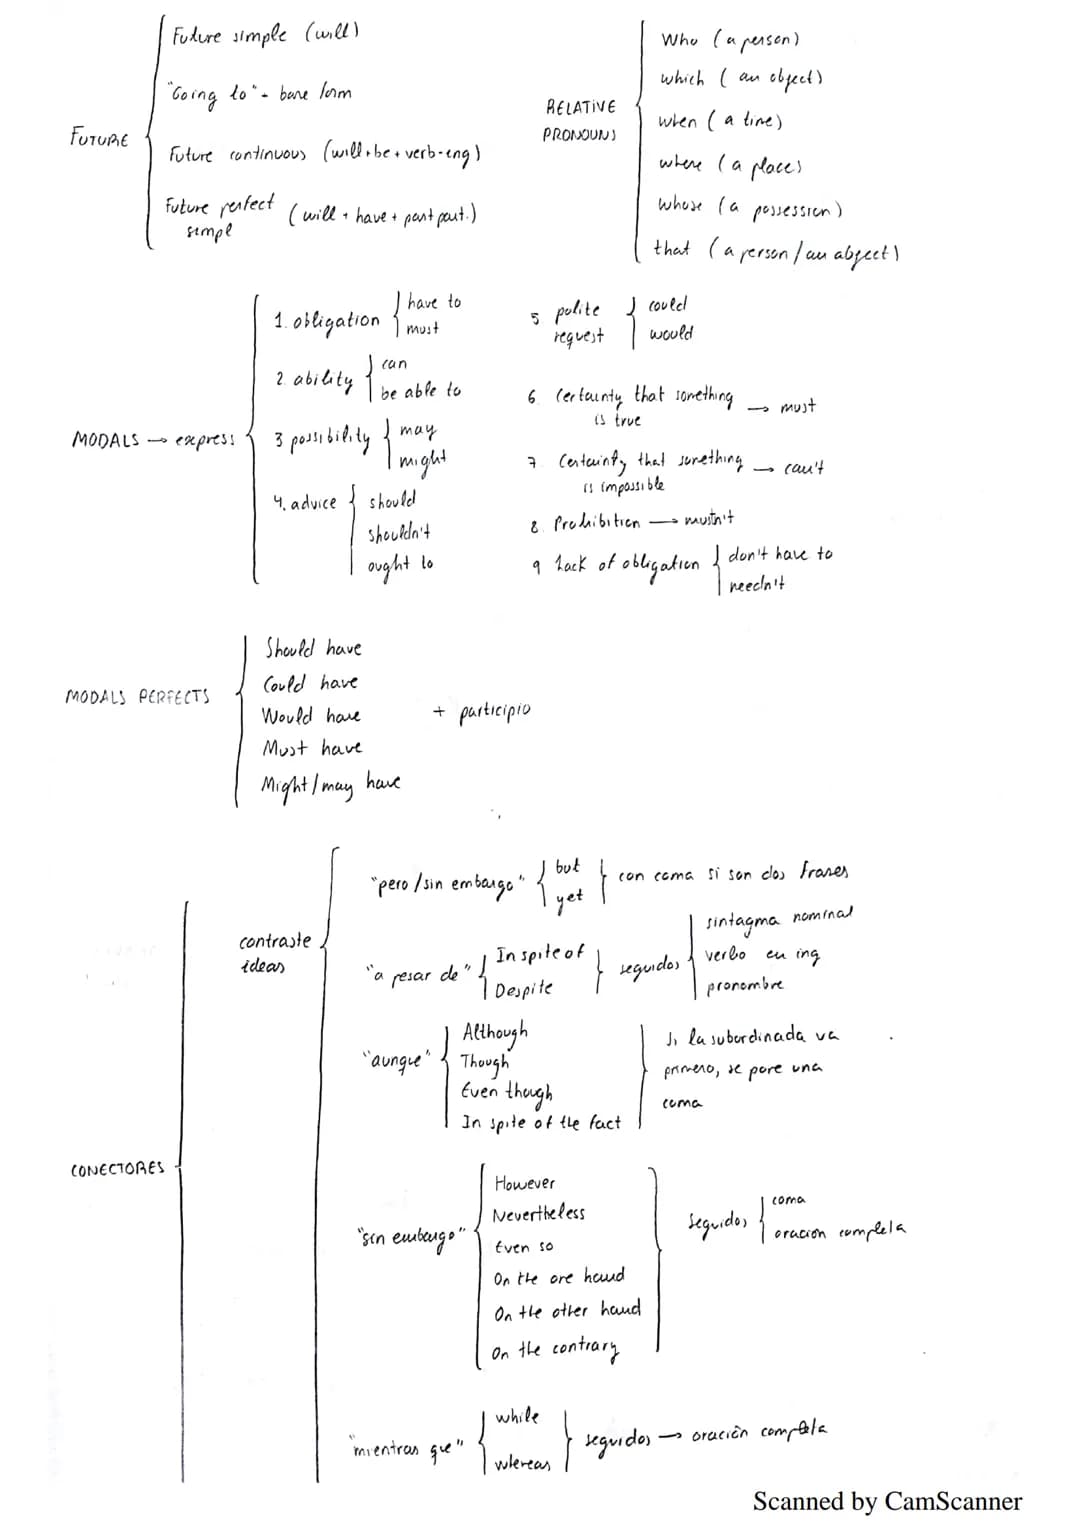 FUTURE
Future simple (will)
"Going to" + bare form
Future continuous (will + be + verb-eng)
Future perfect simpl (will + have + past part.)
RELATIVE
PRONOUNS
Who (a person)
which (an object)
when (a time)
where (a place)
whose (a possession)
that (a person/an object)
MODALS → express
1. obligation
have to
must
2. ability
can
be able to
3 possibility
may
might
4. advice
should
shouldn't
ought to
5 polite
request
could
would
6. Certainty that something
is true → must
7. Certainty that something
is impossible → can't
8. Prohibition → mustn't
9 Lack of obligation
don't have to
needn't
MODALS PERFECTS
Should have
Could have
Would have
Must have
Might/may have
+ participio
CONECTORES
contraste
ideas
"pero/sin embargo"
but
yet
con coma si son dos frases
"a pesar de"
In spite of
Despite
seguidos
sintagma nominal
verbo en ing
pronombre
"aunque"
Although
Though
Even though
In spite of the fact
Si la subordinada va
primero, se pone una
coma
"sin embargo"
However
Nevertheless
Even so
On the one hand
On the other hand
On the contrary
seguidos
coma
oracion completa
"mientras que"
while
whereas
seguidos → oración completa
Scanned by CamScanner